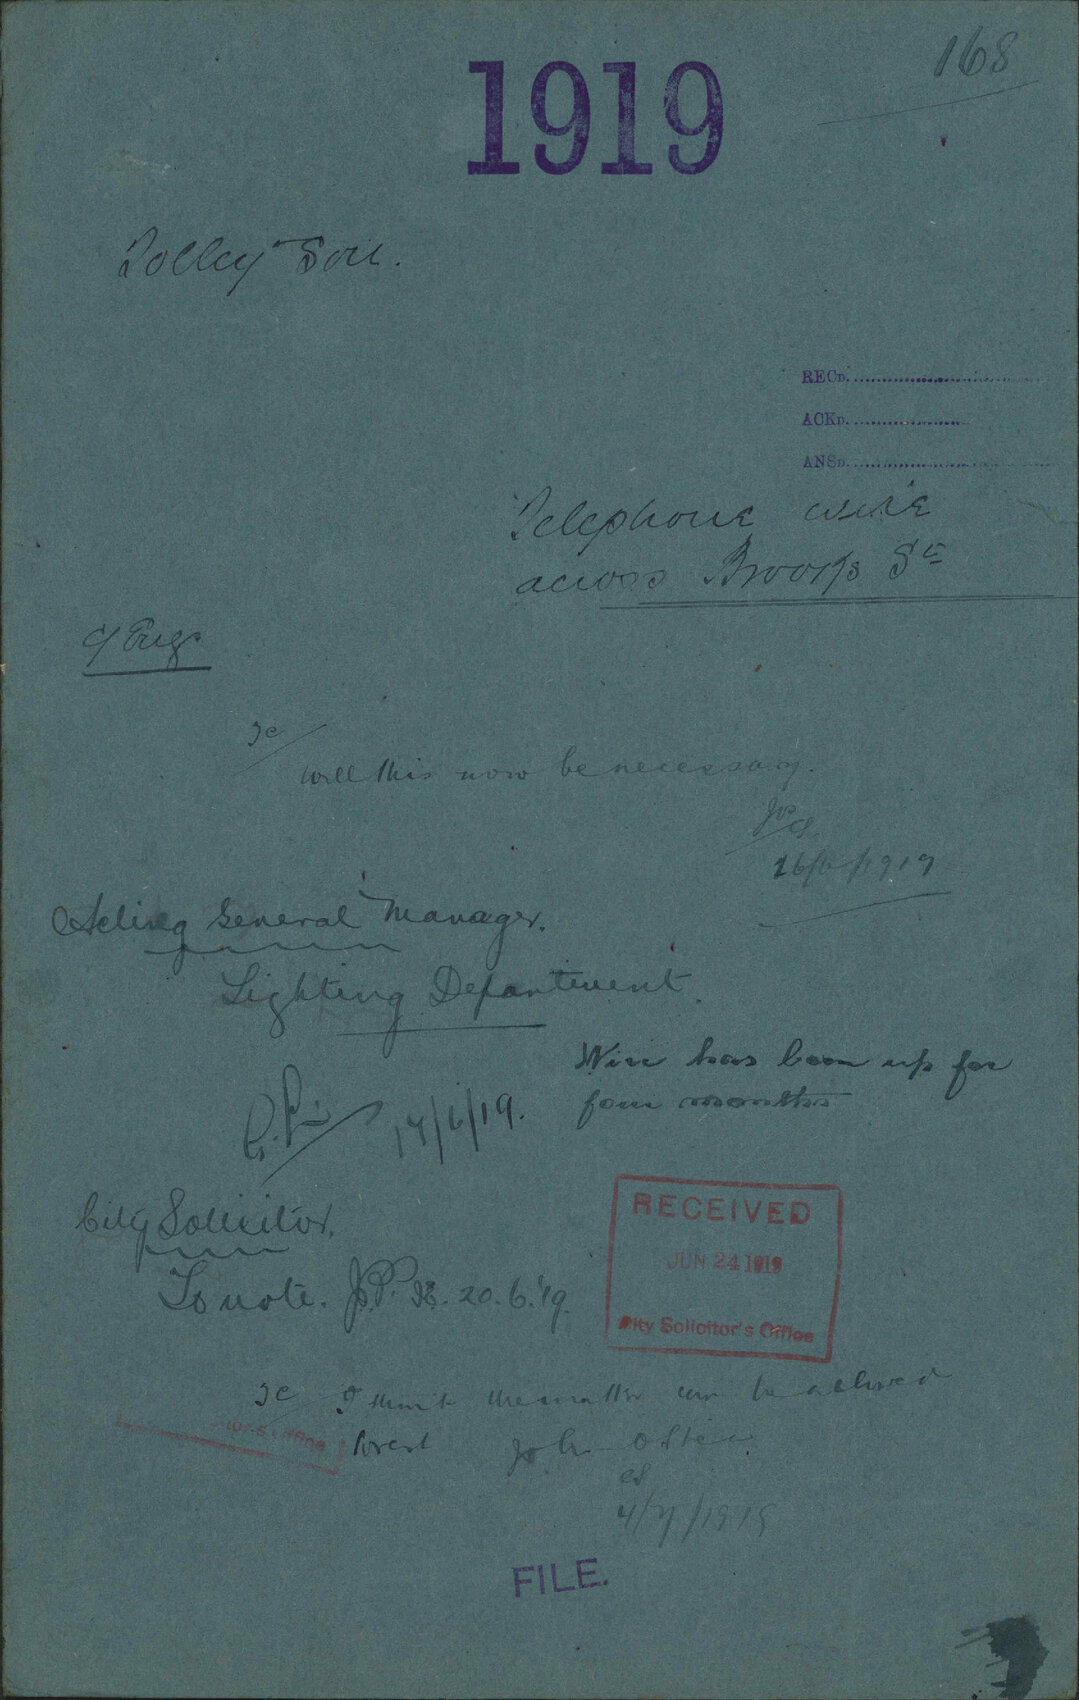 168
1919
Tolley & Son.
RECD.
ACKD.
ANSD.
Telephone wire
across Brooks St
C/Eng
TC
will this now be necessary.
16/6/1919
Acting General Manager.
Lighting Department.
Wire has been up for
four months
17/6/19.
City Solicitor.
To note. 20.6.'19.
RECEIVED
JUN 24 1919
City Solicitor's Office
TC I think the matter can be allowed
rest John
CS
4/7/1919
FILE.